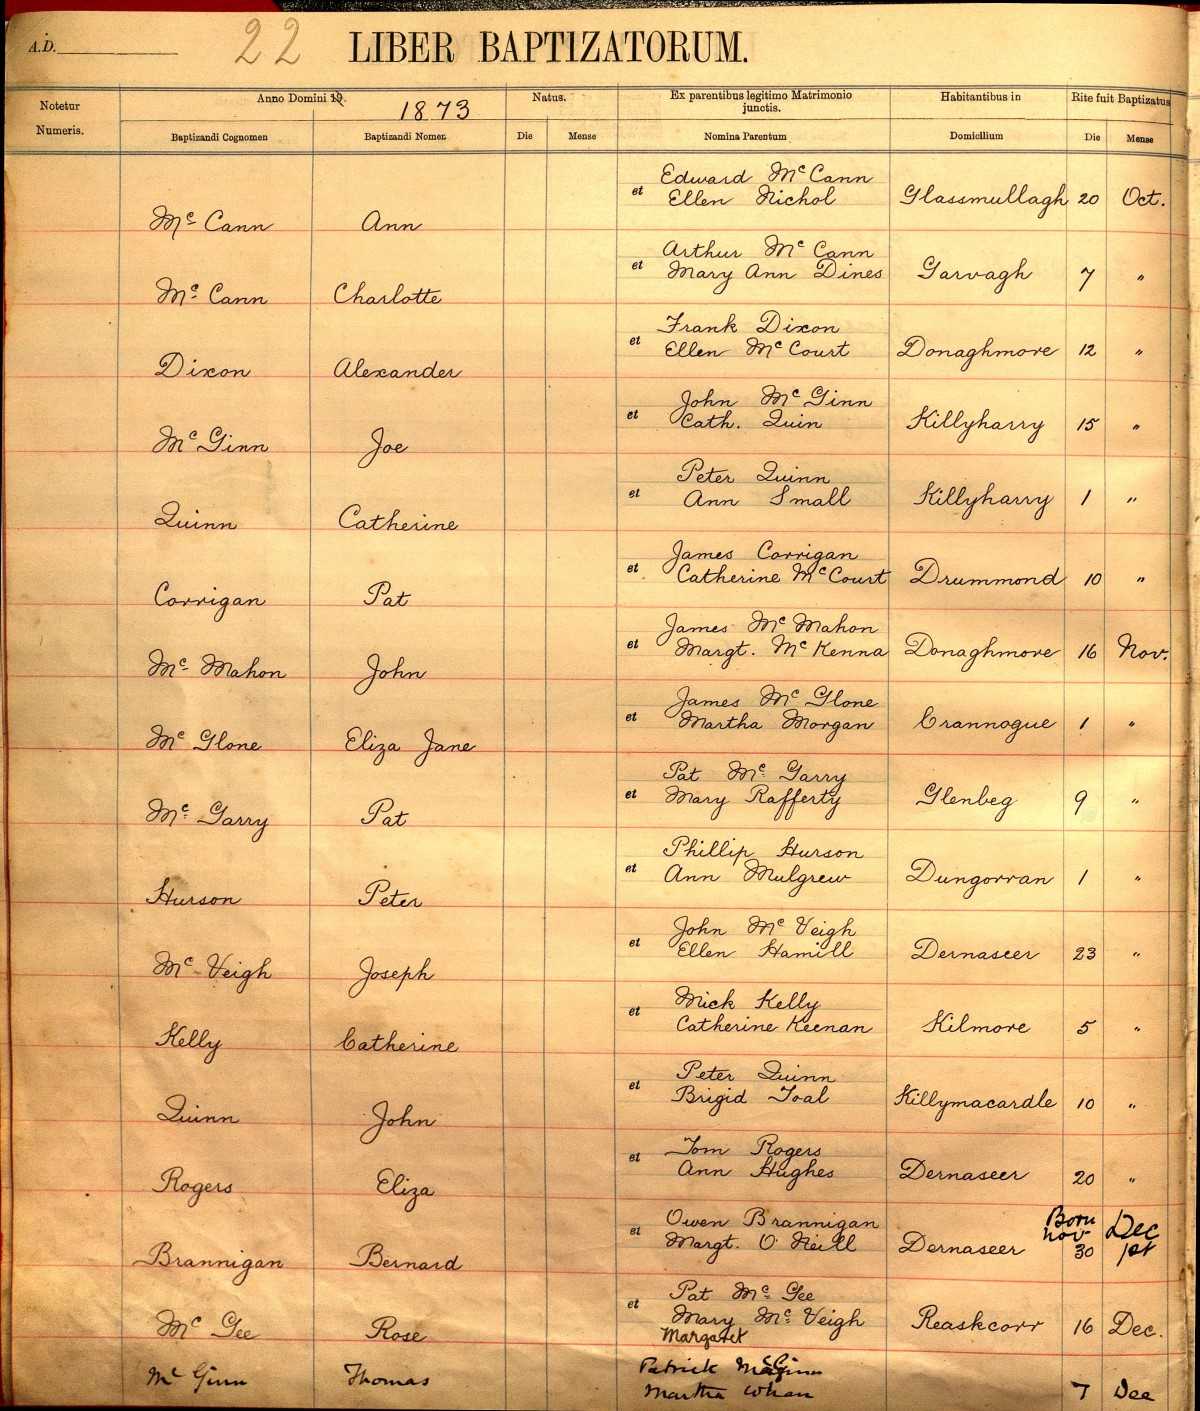 A.D. 22 LIBER BAPTIZATORUM.
Notetur Numeris. Anno Domini 19. 1873 Natus. Ex parentibus legitimo Matrimonio junctis. Habitantibus in Rite fuit Baptizatus
Baptizandi Cognomen Baptizandi Nomen Die Mense Nomina Parentum Domicilium Die Mense
Edward McCann
et Ellen Nichol Glassmullagh 20 Oct.
Mc Cann Ann
Arthur Mc Cann
et Mary Ann Dines Garvagh 7 "
Mc Cann Charlotte
Frank Dixon
et Ellen McCourt Donaghmore 12 "
Dixon Alexander
John McGinn
et Cath. Quin Killyharry 15 "
McGinn Joe
Peter Quinn
et Ann Small Killyharry 1 "
Quinn Catherine
James Corrigan
et Catherine McCourt Drummond 10 "
Corrigan Pat
James McMahon
et Margt. McKenna Donaghmore 16 Nov.
Mc Mahon John
James McGlone
et Martha Morgan Crannogue 1 "
Mc Glone Eliza Jane
Pat Mc Garry
et Mary Rafferty Glenbeg 9 "
Mc Garry Pat
Phillip Hurson
et Ann Mulgrew Dungorran 1 "
Hurson Peter
John McVeigh
et Ellen Hamill Dernaseer 23 "
Mc Veigh Joseph
Mick Kelly
et Catherine Keenan Kilmore 5 "
Kelly Catherine
Peter Quinn
et Brigid Toal Killymacardle 10 "
Quinn John
Tom Rogers
et Ann Hughes Dernaseer 20 "
Rogers Eliza
Owen Brannigan Born Dec
et Margt. O'Neill Dernaseer Nov 30 1st
Brannigan Bernard
Pat Mc Gee
et Mary McVeigh Reaskcorr 16 Dec.
Mc Gee Rose Margaret
Mc Ginn Thomas Patrick McGinn
Martha Whan 7 Dec